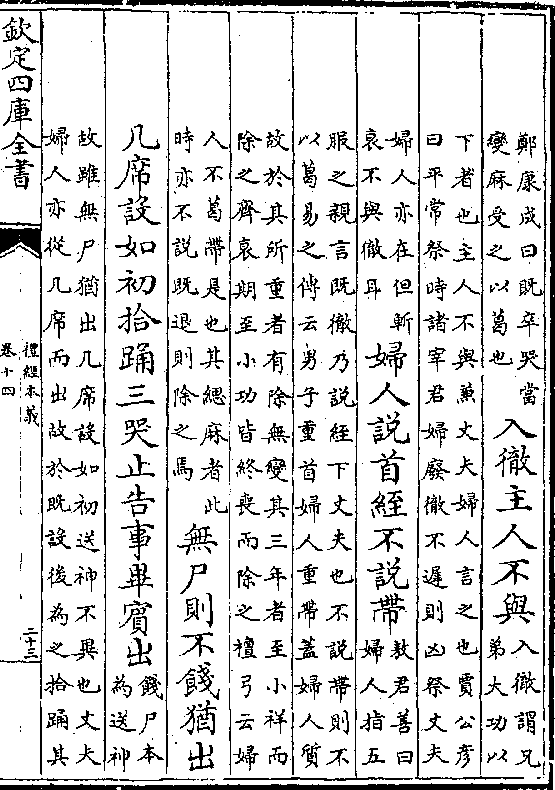 鄭康成曰既卒哭當
變麻受之以葛也
入徹主人不與
入徹謂兄
弟大功以
下者也主人不與兼丈夫婦人言之也賈公彦
曰平常祭時諸宰君婦廢徹不遲則凶祭丈夫
婦人亦在但斬
哀不與徹耳
婦人説首絰不説帶
敖君善曰
婦人指五
服之親言既徹乃説絰下丈夫也不説帶則不
以葛易之傳云男子重首婦人重帶蓋婦人質
故於其所重者有除無變其三年者至小祥而
除之齊哀期至小功皆終喪而除之檀弓云婦
人不葛帶是也其緦麻者此
時亦不説既退則除之焉
無尸則不餞猶出
几席設如初拾踊三哭止告事畢賓出
餞尸本
為送神
故雖無尸猶出几席設如初送神不異也丈夫
婦人亦從几席而出故於既設後為之拾踊其
欽定四庫全書
禮經本義
卷十四
二十三